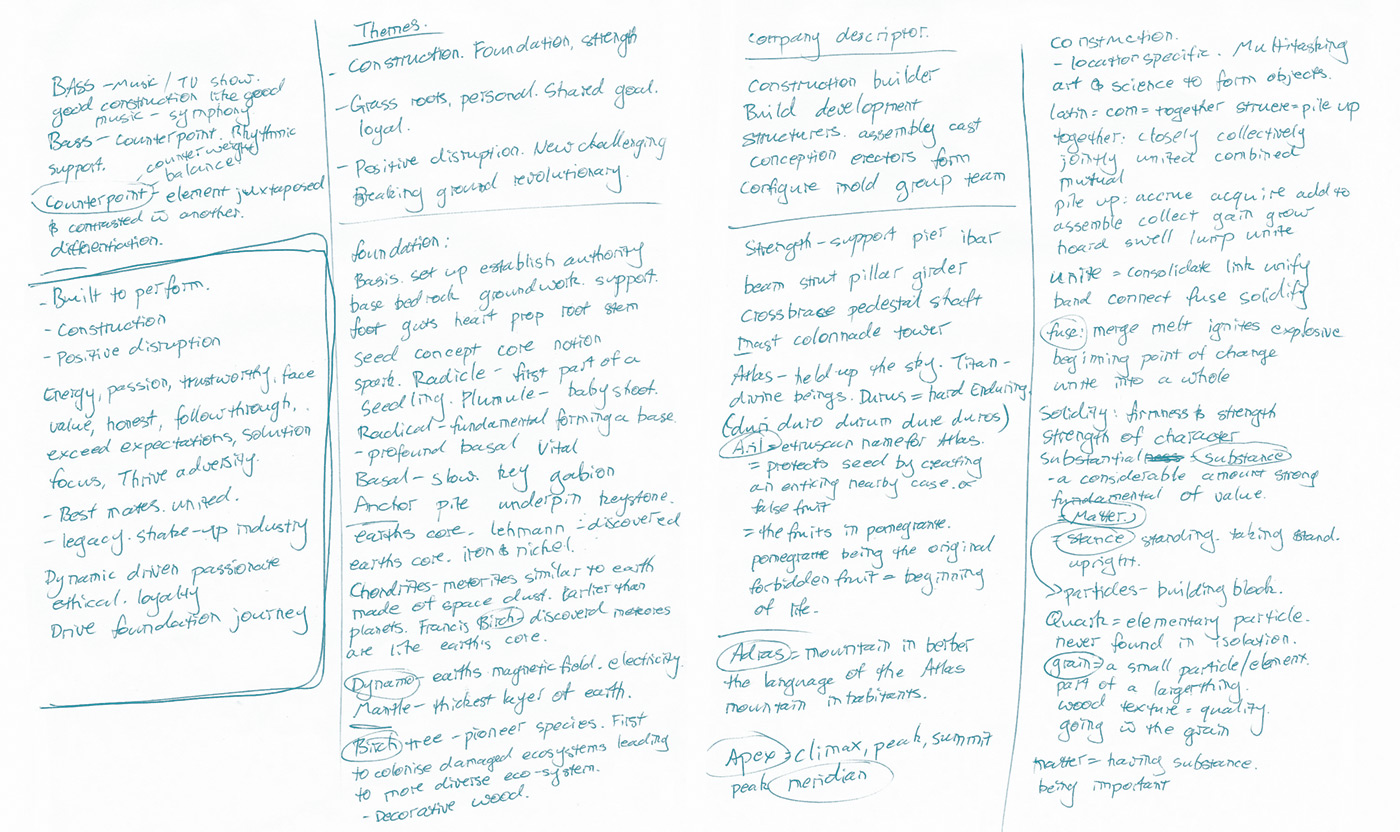 BASS - music / TV show.
good construction like good
music - symphony
Bass - counterpoint. Rhythmic
support.
counterweight
balance
Counterpoint - element juxtaposed
& contrasted w another.
differentiation.
- Built to perform.
- Construction
- Positive disruption
Energy, passion, trustworthy, face
value, honest, follow through,
exceed expectations, solution
focus, Thrive adversity.
- Best mates. united.
- legacy. shake-up industry
Dynamic driven passionate
ethical. loyalty
Drive foundation journey
Themes.
- Construction. Foundation, strength
- Grass roots, personal. Shared goal.
loyal.
- Positive disruption. New challenging
Breaking ground revolutionary.
foundation:
Basis. set up establish authority
base bedrock groundwork. support.
foot guts heart prop root stem
seed concept core notion
spark. Radicle - first part of a
seedling. Plumule - baby shoot.
Radical - fundamental forming a base.
- profound basal vital
Basal - slow. key gabion
Anchor pile underpin keystone.
earths core. lehmann - discovered
earths core. iron & nickel.
Chondrites - meteorites similar to earth
made of space dust. Earlier than
planets. Francis Birch discoverd meteores
are like earth's core.
Dynamo - earths magnetic field. electricity.
Mantle - thickest layer of earth.
Birch tree - pioneer species. First
to colonise damaged ecosystems leading
to more diverse eco-system.
- Decorative wood.
company descriptor.
Construction builder
Build development
structurers. assembly cast
conception erectors form
configure mold group team
Strength - support pier ibar
beam strut pillar girder
crossbrace pedestal shaft
Mast colonnade tower
Atlas - held up the sky. Titan -
divine beings. Durus = hard Enduring.
(duri duro durum dure duros)
Aril = etruscan name for Atlas.
= protects seed by creating
an enticing nearby case. or
false fruit
= the fruits in pomegrante.
pomegrante being the original
forbidden fruit = beginning
of life.
Adras = mountain in berber
the language of the Atlas
mountain inhabitants.
Apex > climax, peak, summit
peak meridian
construction.
- location specific. Multitasking
art & science to form objects.
latin = com = together struere = pile up
together: closely collectively
jointly united combined
mutual
pile up: accrue acquire add to
assemble collect gain grow
hoard swell lump unite
unite = consolidate link unify
band connect fuse solidify
fuse: merge melt ignites explosive
beginning point of change
unite into a whole
Solidity: firmness & strength
strength of character
substantial - substance
- a considerable amount strong
fundamental of value.
= Matter.
= stance standing. taking stand.
upright.
> particles - building block.
Quark = elementary particle.
never found in isolation.
grain = a small particle/element.
part of a larger thing.
wood texture = quality.
going w the grain
matter = having substance.
being important